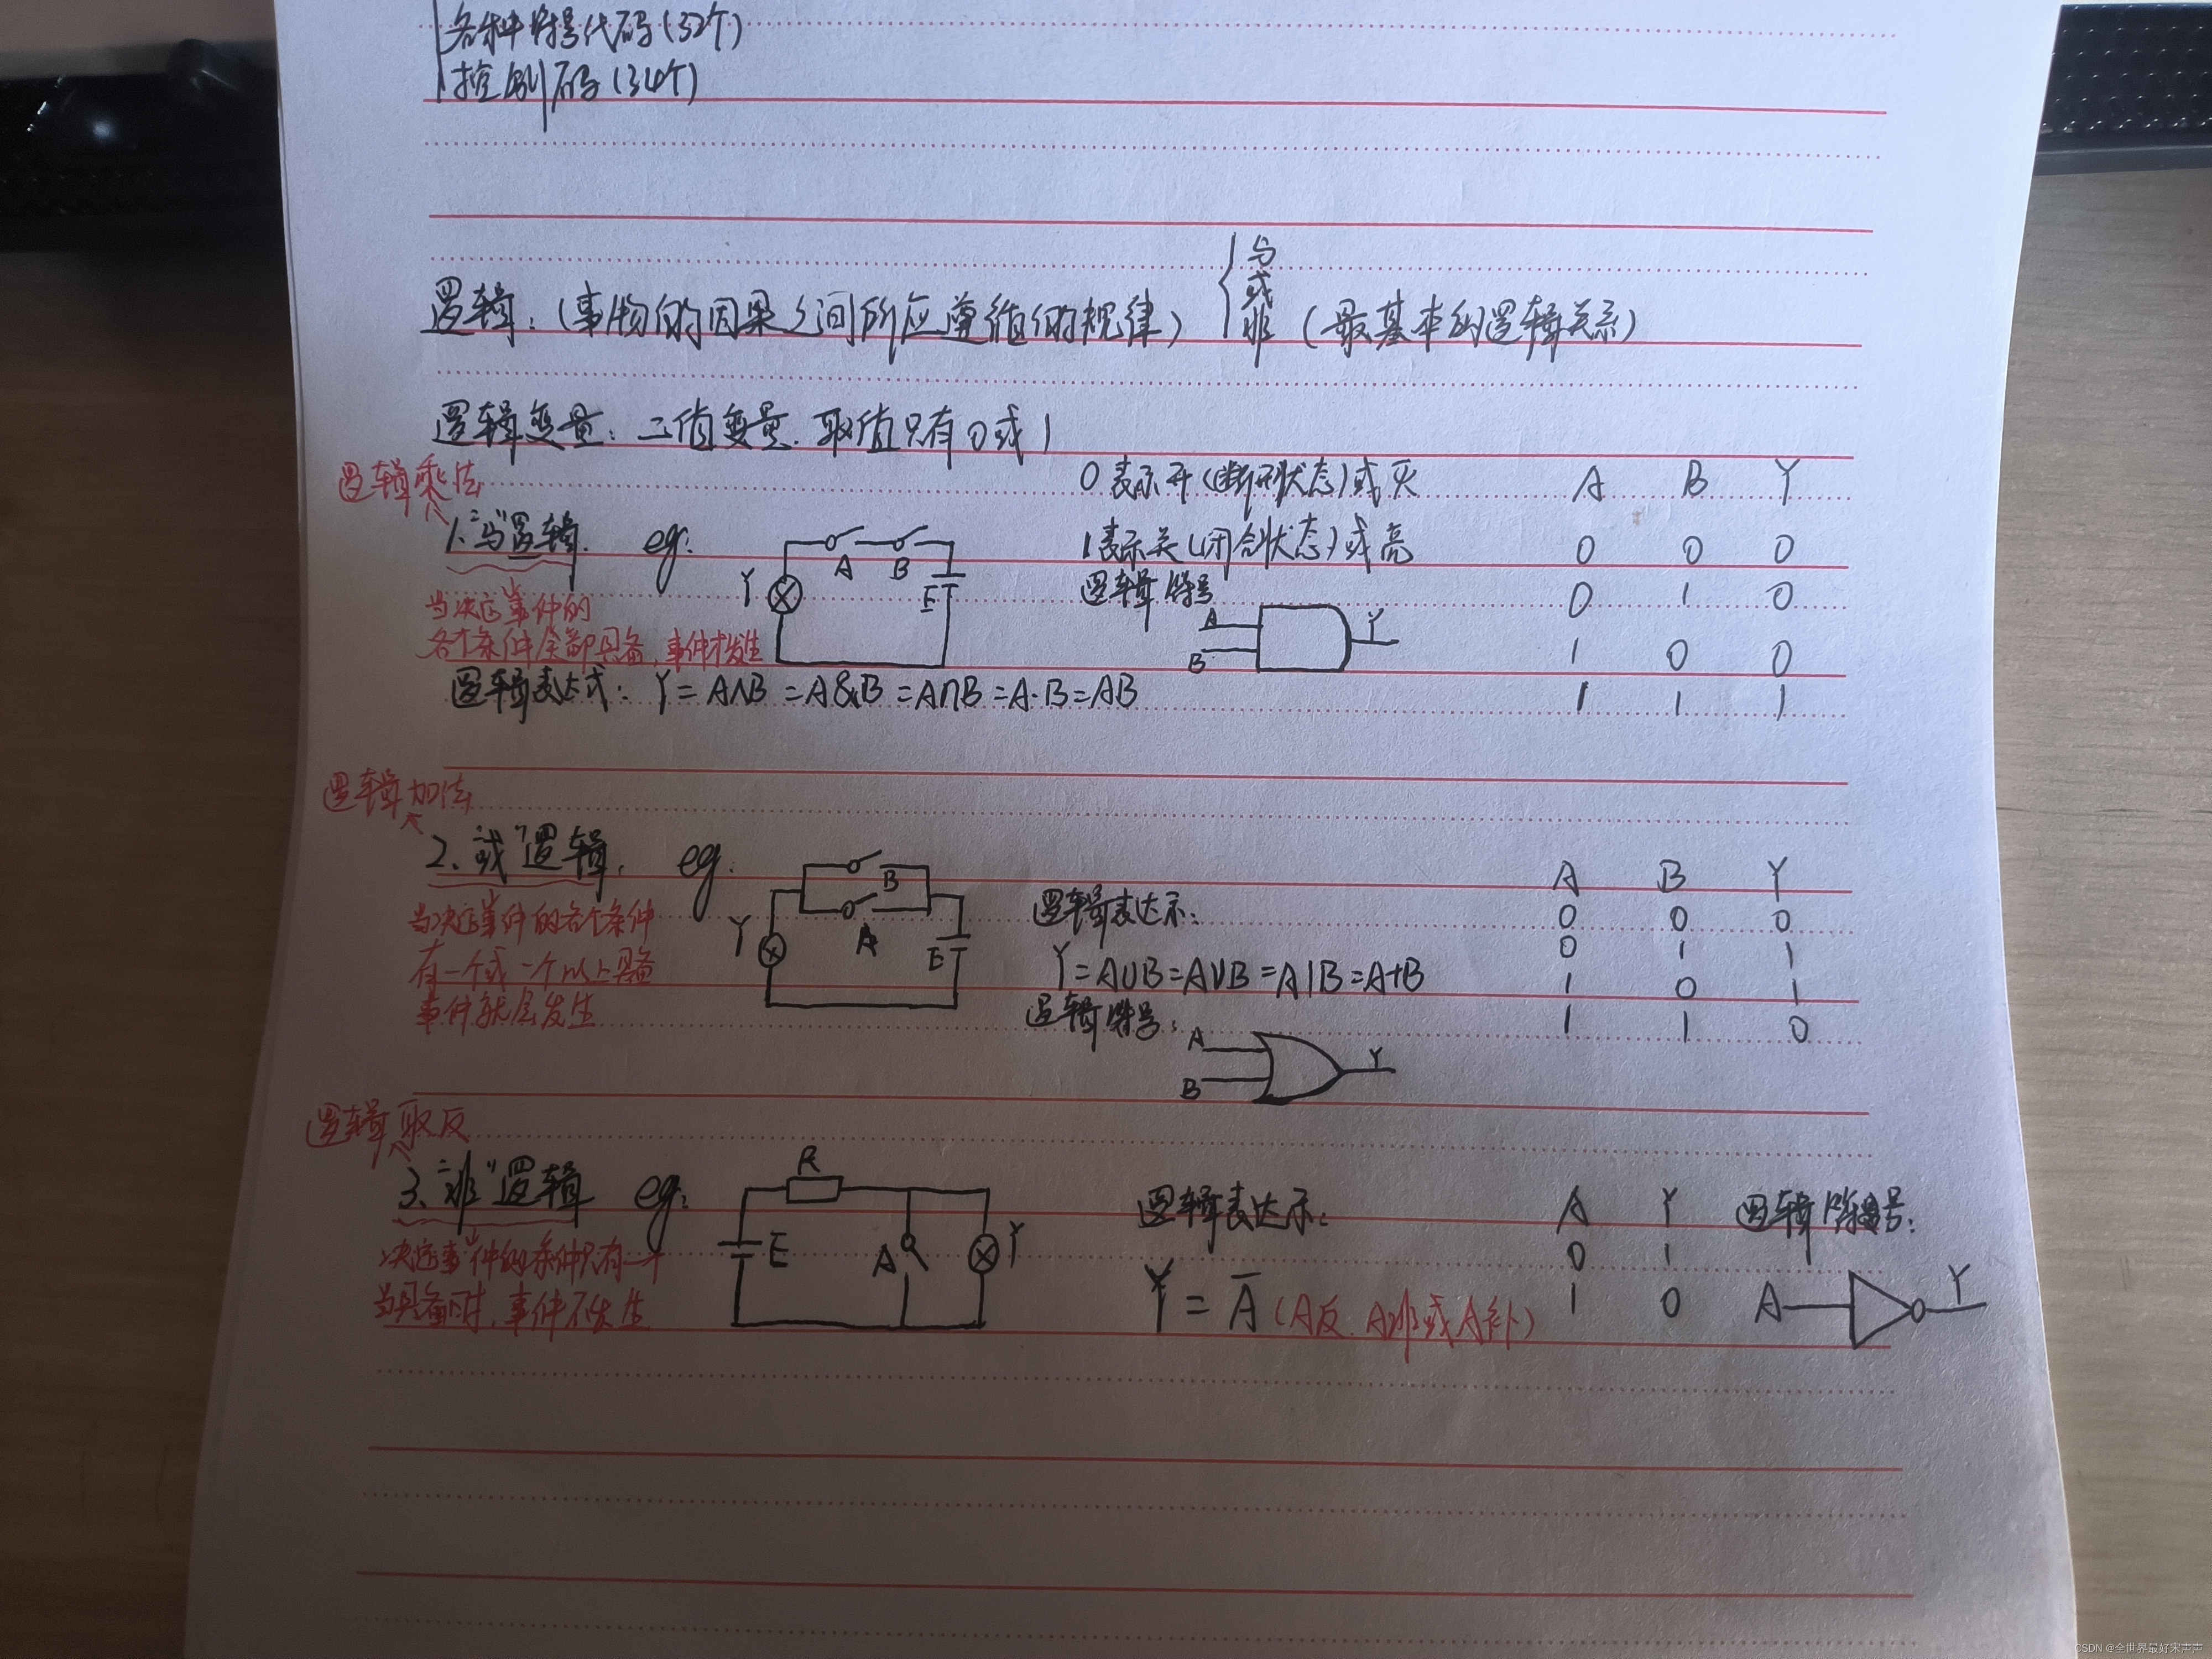 各种符号代码(32个)
控制码(34个)
逻辑:(事物的因果之间所应遵循的规律) { 与 或 非 (最基本的逻辑关系)
逻辑变量:二值变量.取值只有0或1
逻辑乘法
1."与"逻辑. eg:
当决定事件的
各个条件全部具备,事件才发生
Y A B E
逻辑表达式: Y=A∧B=A&B=A∩B=A·B=AB
0表示开(断开状态)或灭
1表示关(闭合状态)或亮
逻辑符号
A B Y
A B Y
0 0 0
0 1 0
1 0 0
1 1 1
逻辑加法
2."或"逻辑. eg.
当决定事件的各个条件
有一个或一个以上具备
事件就会发生
Y B A E
逻辑表达示:
Y=A∪B=A∨B=A|B=A+B
逻辑符号:
A B Y
A B Y
0 0 0
0 1 1
1 0 1
1 1 0
逻辑取反
3."非"逻辑 eg:
决定事件的条件只有一个
当具备时,事件不发生
R E A Y
逻辑表达示:
Y=A̅(A反.A非或A补)
A Y
0 1
1 0
逻辑符号:
A Y
CSDN @全世界最好宋声声